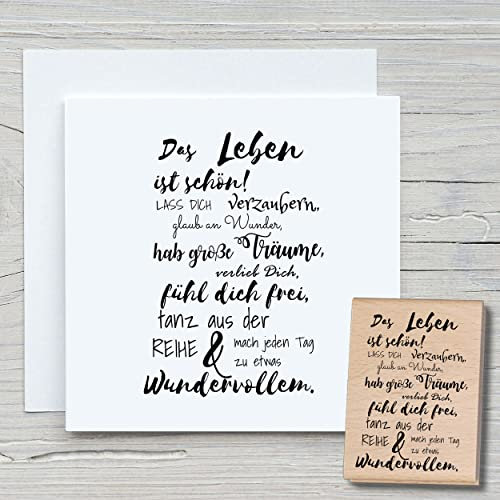 Das Leben
ist schön!
LASS DICH verzaubern,
glaub an Wunder,
hab große Träume,
verlieb Dich,
fühl dich frei,
tanz aus der
REIHE & mach jeden Tag
zu etwas
Wundervollem.
Das Leben
ist schön!
LASS DICH verzaubern,
glaub an Wunder,
hab große Träume,
verlieb Dich,
fühl dich frei,
tanz aus der
REIHE & mach jeden Tag
zu etwas
Wundervollem.